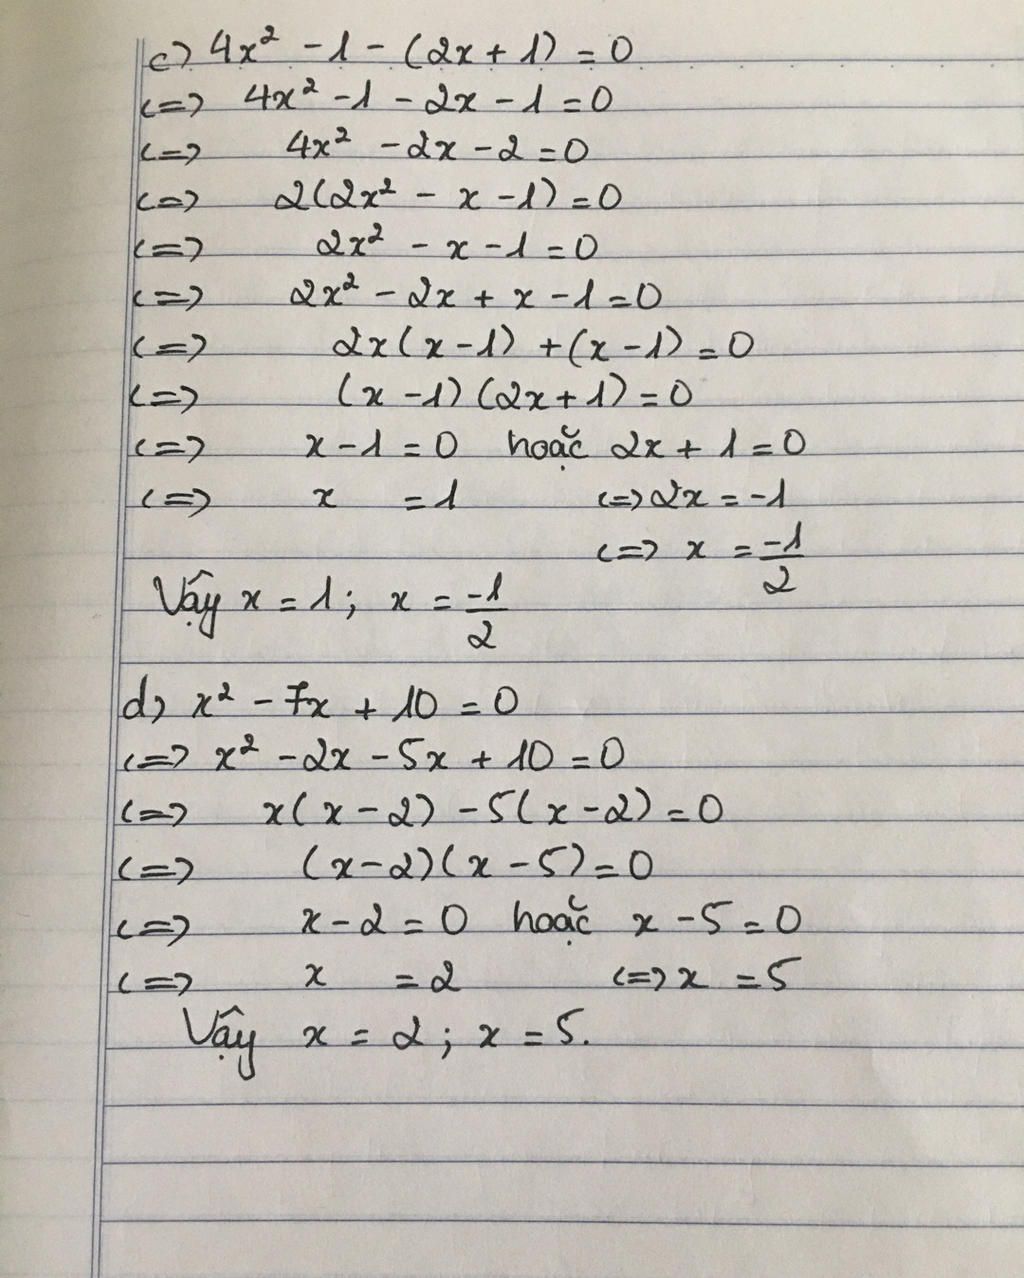 c) 4x² - 1 - (2x + 1) = 0
<=> 4x² - 1 - 2x - 1 = 0
<=> 4x² - 2x - 2 = 0
<=> 2(2x² - x - 1) = 0
<=> 2x² - x - 1 = 0
<=> 2x² - 2x + x - 1 = 0
<=> 2x(x - 1) + (x - 1) = 0
<=> (x - 1)(2x + 1) = 0
<=> x - 1 = 0 hoặc 2x + 1 = 0
<=> x = 1 <=> 2x = -1
<=> x = -1/2
Vậy x = 1; x = -1/2
d) x² - 7x + 10 = 0
<=> x² - 2x - 5x + 10 = 0
<=> x(x - 2) - 5(x - 2) = 0
<=> (x - 2)(x - 5) = 0
<=> x - 2 = 0 hoặc x - 5 = 0
<=> x = 2 <=> x = 5
Vậy x = 2; x = 5.